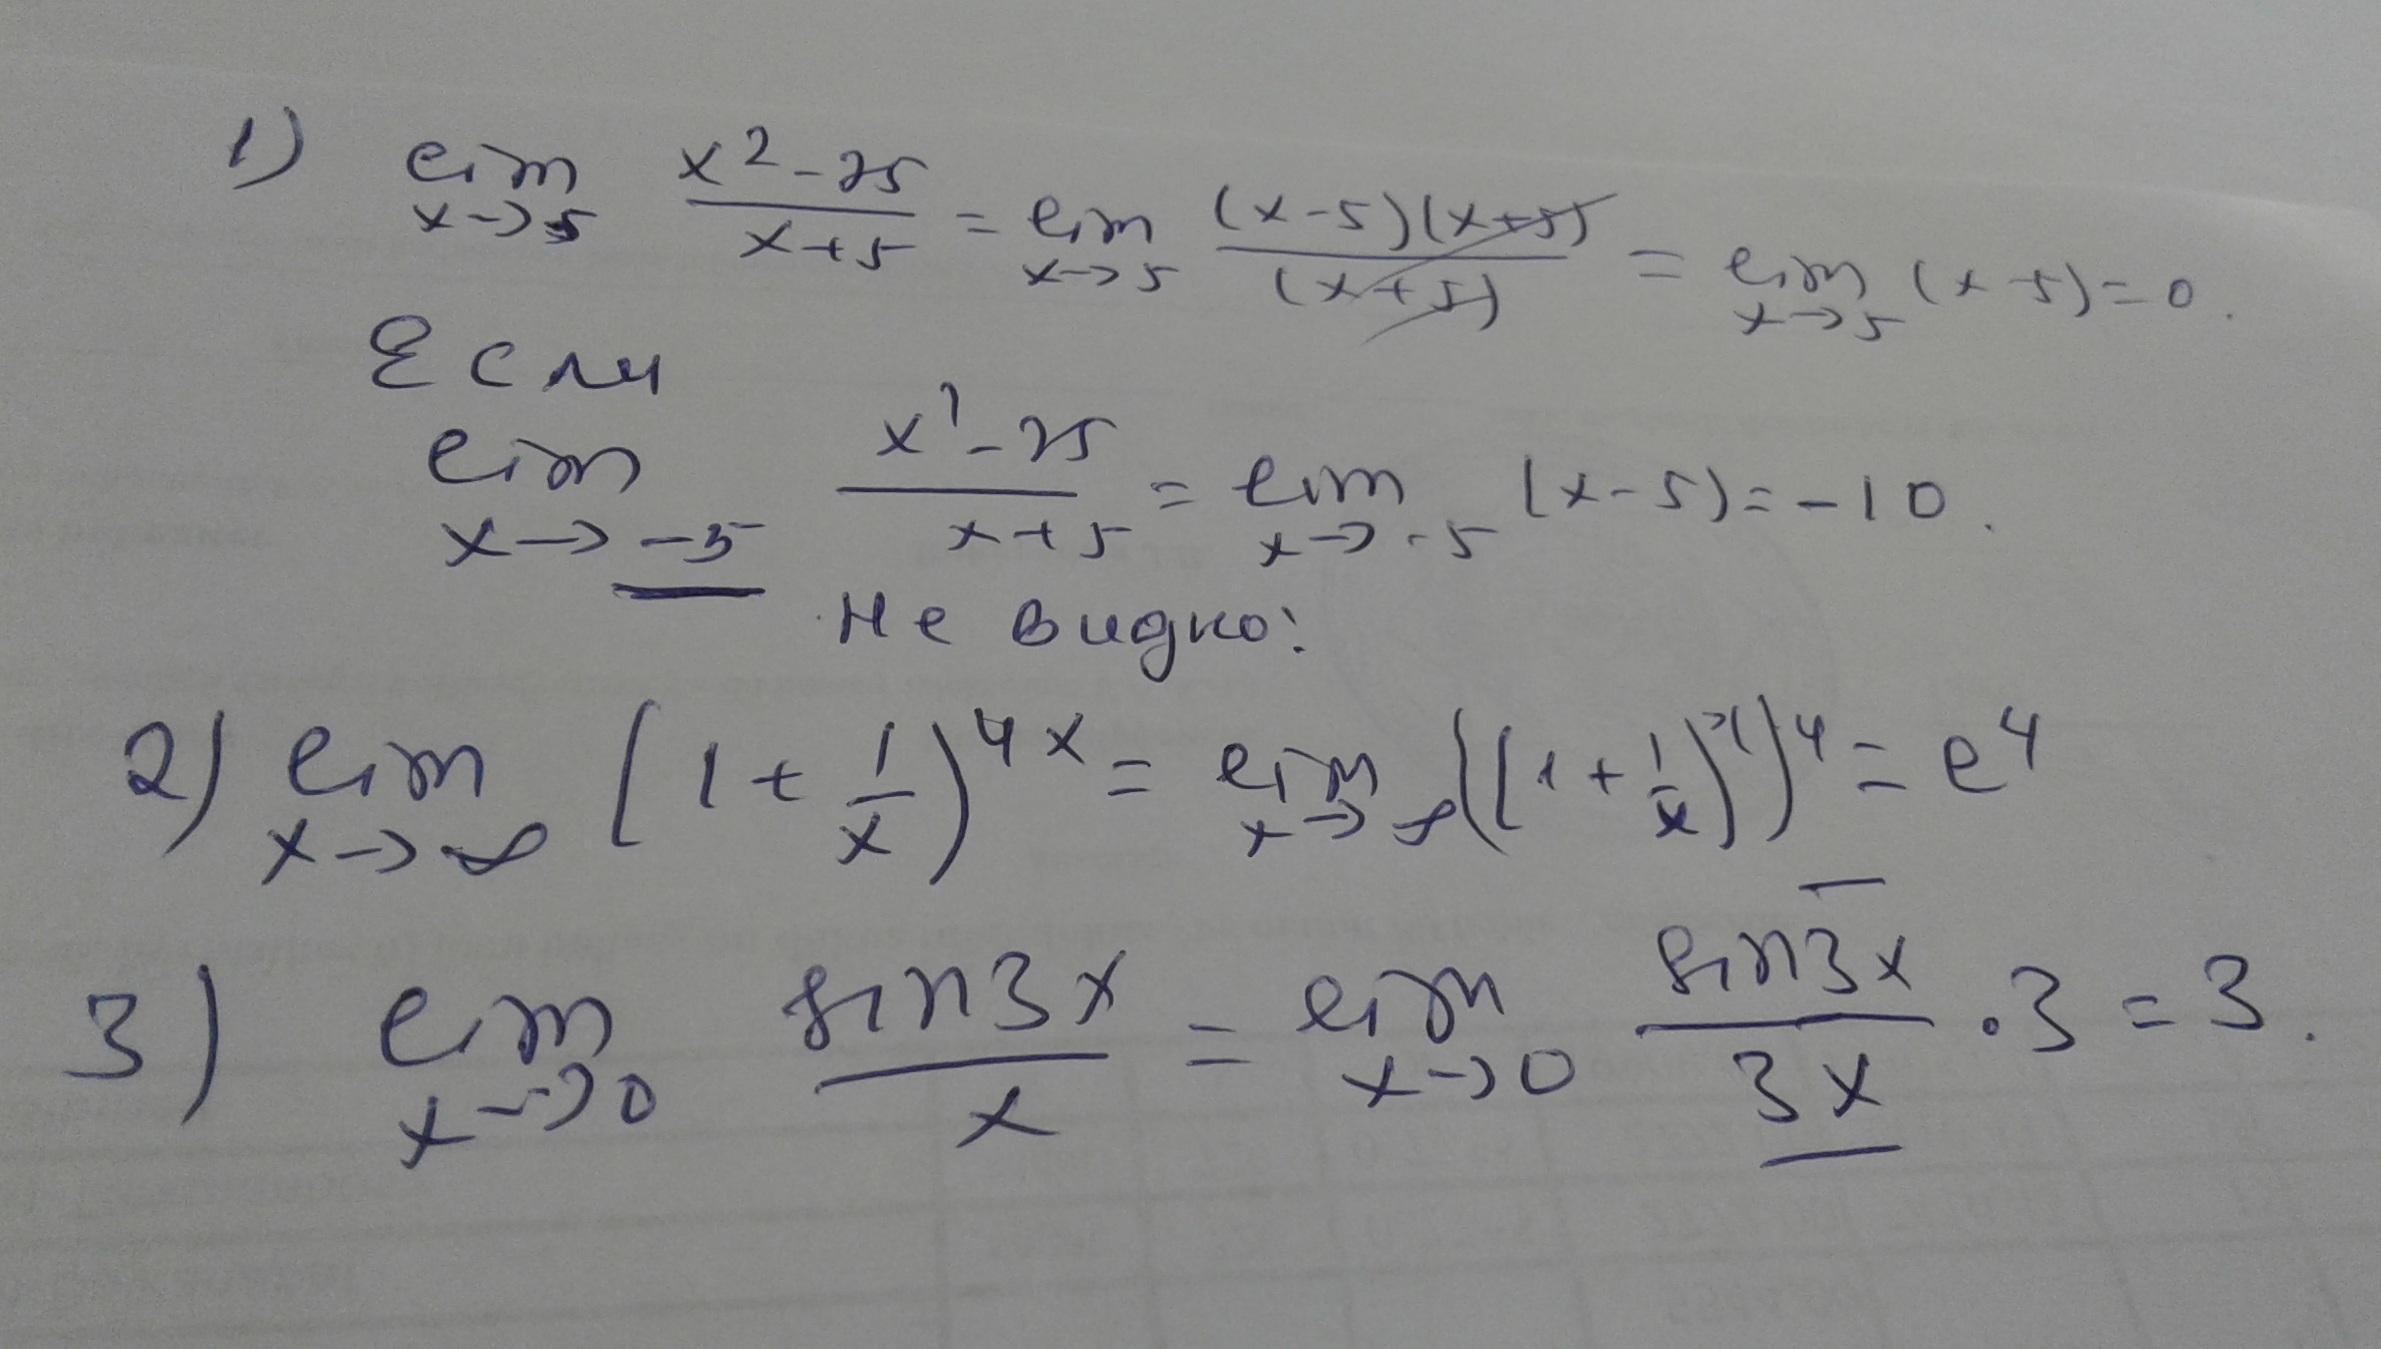 1) lim x→5 (x² - 25)/(x+5) = lim x→5 (x-5)(x+5)/(x+5) = lim x→5 (x-5) = 0.
Если
lim x→-5 (x² - 25)/(x+5) = lim x→-5 (x-5) = -10.
Не видно!
2) lim x→∞ (1 + 1/x)^4x = lim x→∞ ((1 + 1/x)^x)^4 = e^4
3) lim x→0 sin3x/x = lim x→0 sin3x/3x · 3 = 3.